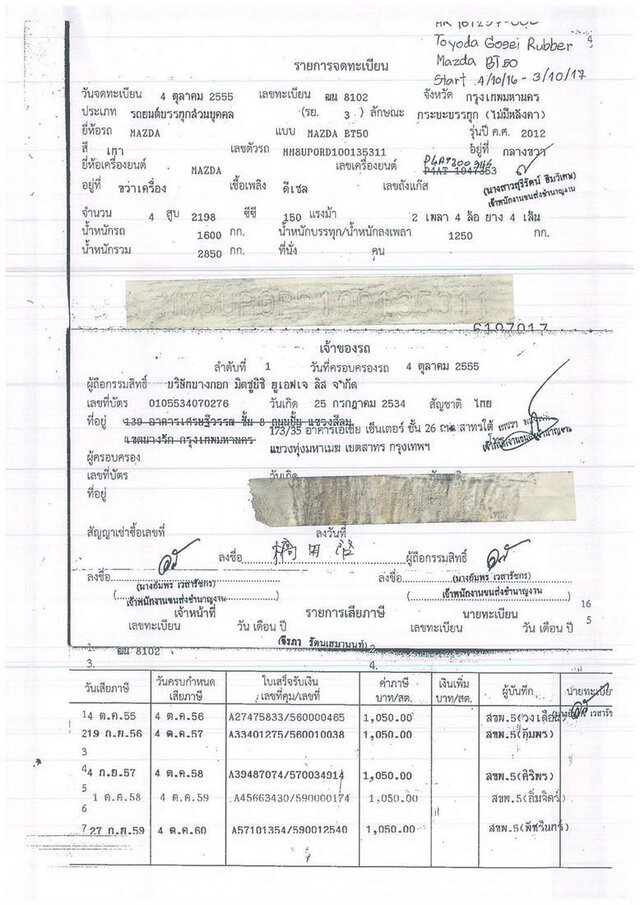 Toyoda Gosei Rubber
Mazda BT50
Start 4/10/16 - 3/10/17
รายการจดทะเบียน
วันจดทะเบียน 4 ตุลาคม 2555 เลขทะเบียน ฒน 8102 จังหวัด กรุงเทพมหานคร
ประเภท รถยนต์บรรทุกส่วนบุคคล (รย. 3 ) ลักษณะ กระบะบรรทุก (ไม่มีหลังคา)
ยี่ห้อรถ MAZDA แบบ MAZDA BT50 รุ่นปี ค.ศ. 2012
สี เทา เลขตัวรถ MM8UP0RD100135311 อยู่ที่ กลางขวา
ยี่ห้อเครื่องยนต์ MAZDA เลขเครื่องยนต์ P4AT 1047353
อยู่ที่ ขวาเครื่อง เชื้อเพลิง ดีเซล เลขถังแก๊ส
(นางสาวสุริรัตน์ ฮิมวิเศษ)
เจ้าพนักงานขนส่งชำนาญงาน
จำนวน 4 สูบ 2198 ซีซี 150 แรงม้า 2 เพลา 4 ล้อ ยาง 4 เส้น
น้ำหนักรถ 1600 กก. น้ำหนักบรรทุก/น้ำหนักลงเพลา 1250 กก.
น้ำหนักรวม 2850 กก. ที่นั่ง คน
MM8UP0RD100135311
6197017
เจ้าของรถ
ลำดับที่ 1 วันที่ครอบครองรถ 4 ตุลาคม 2555
ผู้ถือกรรมสิทธิ์ บริษัทบางกอก มิตซูบิชิ ยูเอฟเจ ลิส จำกัด
เลขที่บัตร 0105534070276 วันเกิด 25 กรกฎาคม 2534 สัญชาติ ไทย
ที่อยู่ 138 อาคารเศรษฐีวรรณ ชั้น 8 ถนนปั้น แขวงสีลม
เขตบางรัก กรุงเทพมหานคร
173/35 อาคารเอเชีย เซ็นเตอร์ ชั้น 26 ถนนสาทรใต้
แขวงทุ่งมหาเมฆ เขตสาทร กรุงเทพฯ
ผู้ครอบครอง
เลขที่บัตร วันเกิด
ที่อยู่
สัญญาเช่าซื้อเลขที่ ลงวันที่
ลงชื่อ ผู้ถือกรรมสิทธิ์
ลงชื่อ ลงชื่อ
(นางอัมพร เวสารัชกร) (นางอัมพร เวสารัชกร)
เจ้าพนักงานขนส่งชำนาญงาน เจ้าพนักงานขนส่งชำนาญงาน
เจ้าหน้าที่ รายการเสียภาษี นายทะเบียน 16
เลขทะเบียน วัน เดือน ปี เลขทะเบียน วัน เดือน ปี 5
1. ฒน 8102
3. 4.
วันเสียภาษี วันครบกำหนดเสียภาษี ใบเสร็จรับเงิน เลขที่คุม/เลขที่ ค่าภาษี บาท/สต. เงินเพิ่ม บาท/สต. ผู้บันทึก นายทะเบียน
1 4 ต.ค.55 4 ต.ค.56 A27475833/560000465 1,050.00 สขพ.5(วงเดือน)
2 19 ก.ย.56 4 ต.ค.57 A33401275/560010038 1,050.00 สขพ.5(อุมพร)
3
4 4 ก.ย.57 4 ต.ค.58 A39487074/570034914 1,050.00 สขพ.5(ศิริพร)
5 1 ต.ค.58 4 ต.ค.59 A45663430/590000174 1,050.00 สขพ.5(อิ่มจิตร์)
6
7 27 ก.ย.59 4 ต.ค.60 A57101354/590012540 1,050.00 สขพ.5(พัชรินทร์)